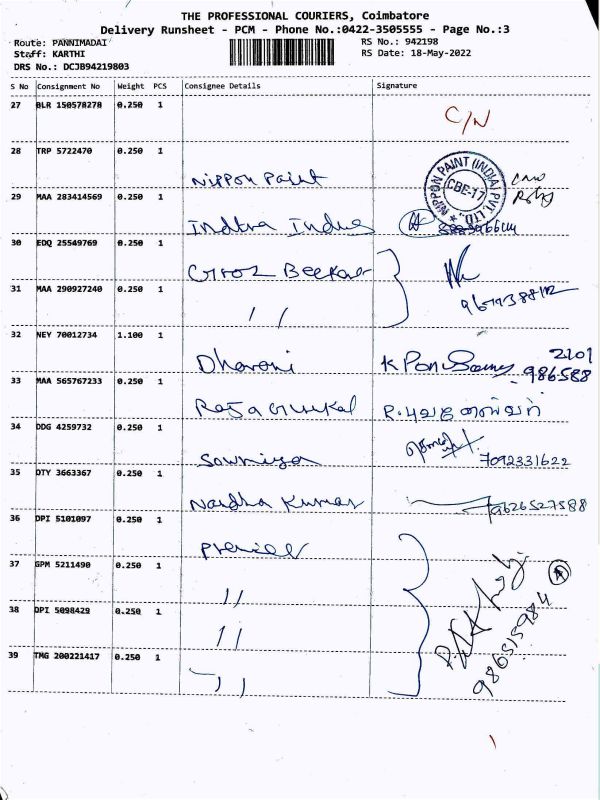 THE PROFESSIONAL COURIERS, Coimbatore
Delivery Runsheet - PCM - Phone No.:0422-3505555 - Page No.:3
Route: PANNIMADAI RS No.: 942198
Staff: KARTHI RS Date: 18-May-2022
DRS No.: DCJB94219803
S No Consignment No Weight PCS Consignee Details Signature
27 BLR 150578278 0.250 1 C/N
28 TRP 5722470 0.250 1 Nippon Paint
NIPPON PAINT (INDIA) PVT. LTD. CBE-17
29 MAA 283414569 0.250 1 Indhra Indus
30 EDQ 25549769 0.250 1
31 MAA 290927240 0.250 1 11
32 NEY 70012734 1.100 1 Dharani 2101
986588
33 MAA 565767233 0.250 1 Raja
34 DDG 4259732 0.250 1 Sowmiya 7092331622
35 DTY 3663367 0.250 1 Nandha Kumar 9626527588
36 DPI 5101097 0.250 1 Premier
37 GPM 5211490 0.250 1 11
38 DPI 5098429 0.250 1 11
39 TMG 200221417 0.250 1 11